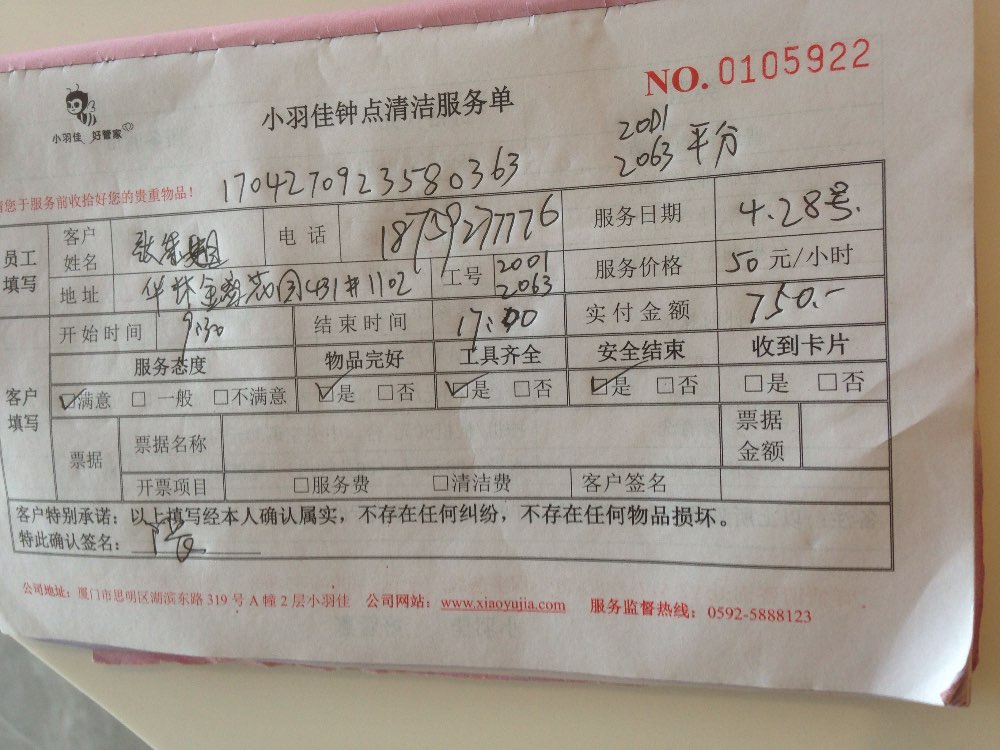 NO.0105922
小羽佳 好管家
小羽佳钟点清洁服务单
2001
2063 平分
请您于服务前收拾好您的贵重物品！
1704270923580363
员工填写 客户姓名 张 电话 18759277776 服务日期 4.28号.
地址 华林金 花园431#1102 工号 2001 2063 服务价格 50 元/小时
开始时间 9:30 结束时间 17:00 实付金额 750.-
客户填写 服务态度 物品完好 工具齐全 安全结束 收到卡片
☑满意 □ 一般 □不满意 ☑是 □否 ☑是 □否 ☑是 □否 □是 □否
票据 票据名称 票据金额
开票项目 □服务费 □清洁费 客户签名
客户特别承诺：以上填写经本人确认属实，不存在任何纠纷，不存在任何物品损坏。
特此确认签名：
公司地址：厦门市思明区湖滨东路 319 号 A 幢 2 层小羽佳 公司网站：www.xiaoyujia.com 服务监督热线：0592-5888123